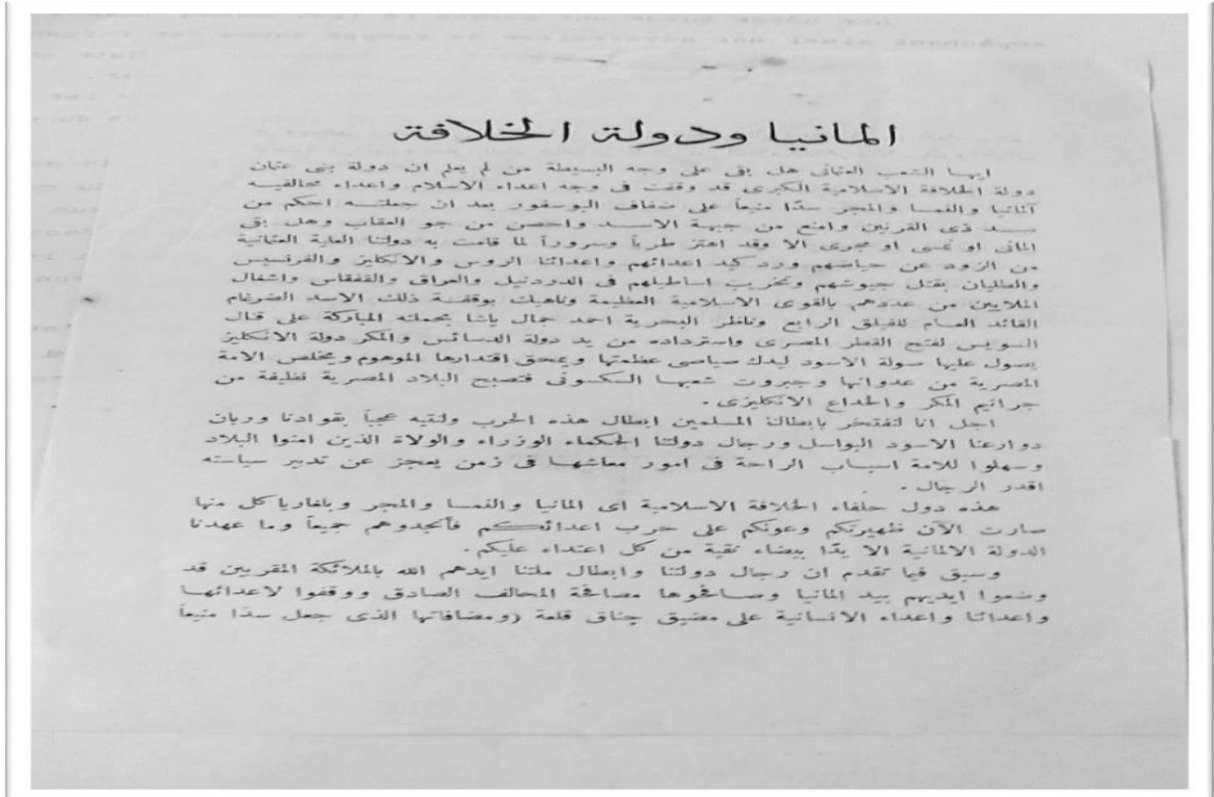 المانيا ودولة الخلافة
ايها الشعب العثمانى هل بقى على وجه البسيطة من لم يعلم ان دولة بنى عثمان
دولة الخلافة الاسلامية الكبرى قد وقفت فى وجه اعداء الاسلام واعداء محالفيه
آلمانيا والنمسا والمجر سدّا منيعاً على ضفاف البوسفور بعد ان جعلته احكم من
سد ذى القرنين وامنع من جبهة الاسد واحصن من جو العقاب وهل بقى
المانى او نمسى او مجرى الا وقد اهتز طرباً وسروراً لما قامت به دولتنا العلية العثمانية
من الزود عن حياضهم ورد كيد اعدائهم واعدائنا الروس والانكليز والفرنسيس
والطليان بقتل جيوشهم وتخريب اساطيلهم فى الدردنيل والعراق والقفقاس واشغال
الملايين من عددهم بالقوى الاسلامية العظيمة وناهيك بوقفة ذلك الاسد الضرغام
القائد العام للفيلق الرابع وناظر البحرية احمد جمال پاشا بحملته المباركة على قنال
السويس لفتح القطر المصرى واسترداده من يد دولة الدسائس والمكر دولة الانكليز
يصول عليها صولة الاسود ليدك صياصى عظمتها ويمحق اقتدارها الموهوم ويخلص الامة
المصرية من عدوانها وجبروت شعبها السكسونى فتصبح البلاد المصرية نظيفة من
جراثيم المكر والخداع الانكليزى .
اجل انا لنفتخر بابطالنا المسلمين ابطال هذه الحرب ولنتيه عجباً بقوادنا وربان
دوارعنا الاسود البواسل ورجال دولتنا الحكماء الوزراء والولاة الذين امنوا البلاد
وسهلوا للامة اسباب الراحة فى امور معاشها فى زمن يعجز عن تدبير سياسته
اقدر الرجال .
هذه دول حلفاء الخلافة الاسلامية اى المانيا والنمسا والمجر وبلغاريا كل منها
صارت الآن ظهيرتكم وعونكم على حرب اعدائكم فأنجدوهم جميعاً وما عهدنا
الدولة الالمانية الا يدّا بيضاء نقية من كل اعتداء عليكم .
وسبق فيما تقدم ان رجال دولتنا وابطال ملتنا ايدهم الله بالملائكة المقربين قد
وضعوا ايديهم بيد المانيا وصافحوها مصافحة المحالف الصادق ووقفوا لاعدائها
واعدائنا واعداء الانسانية على مضيق جناق قلعة (ومضافاتها الذى جعل سدّا منيعاً